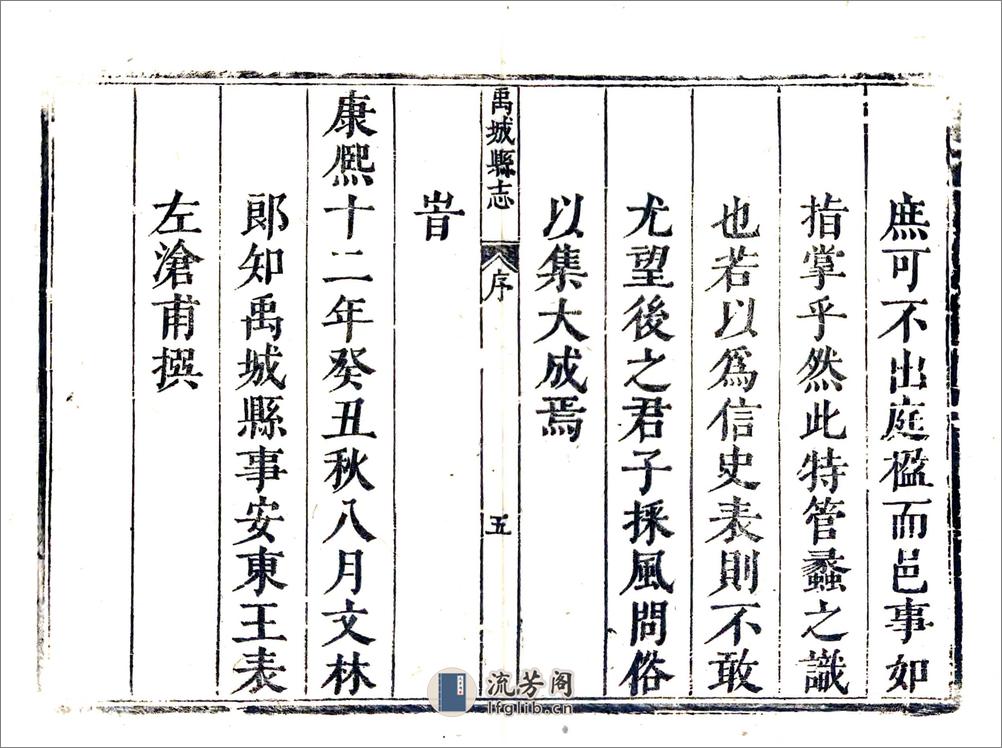 庶可不出庭楹而邑事如
指掌乎然此特管蠡之識
也若以爲信史表則不敢
尤望後之君子採風問俗
以集大成焉
禹城縣志
序
五
旹
康熙十二年癸丑秋八月文林
郎知禹城縣事安東王表
左滄甫撰
流芳阁
lfglib.cn